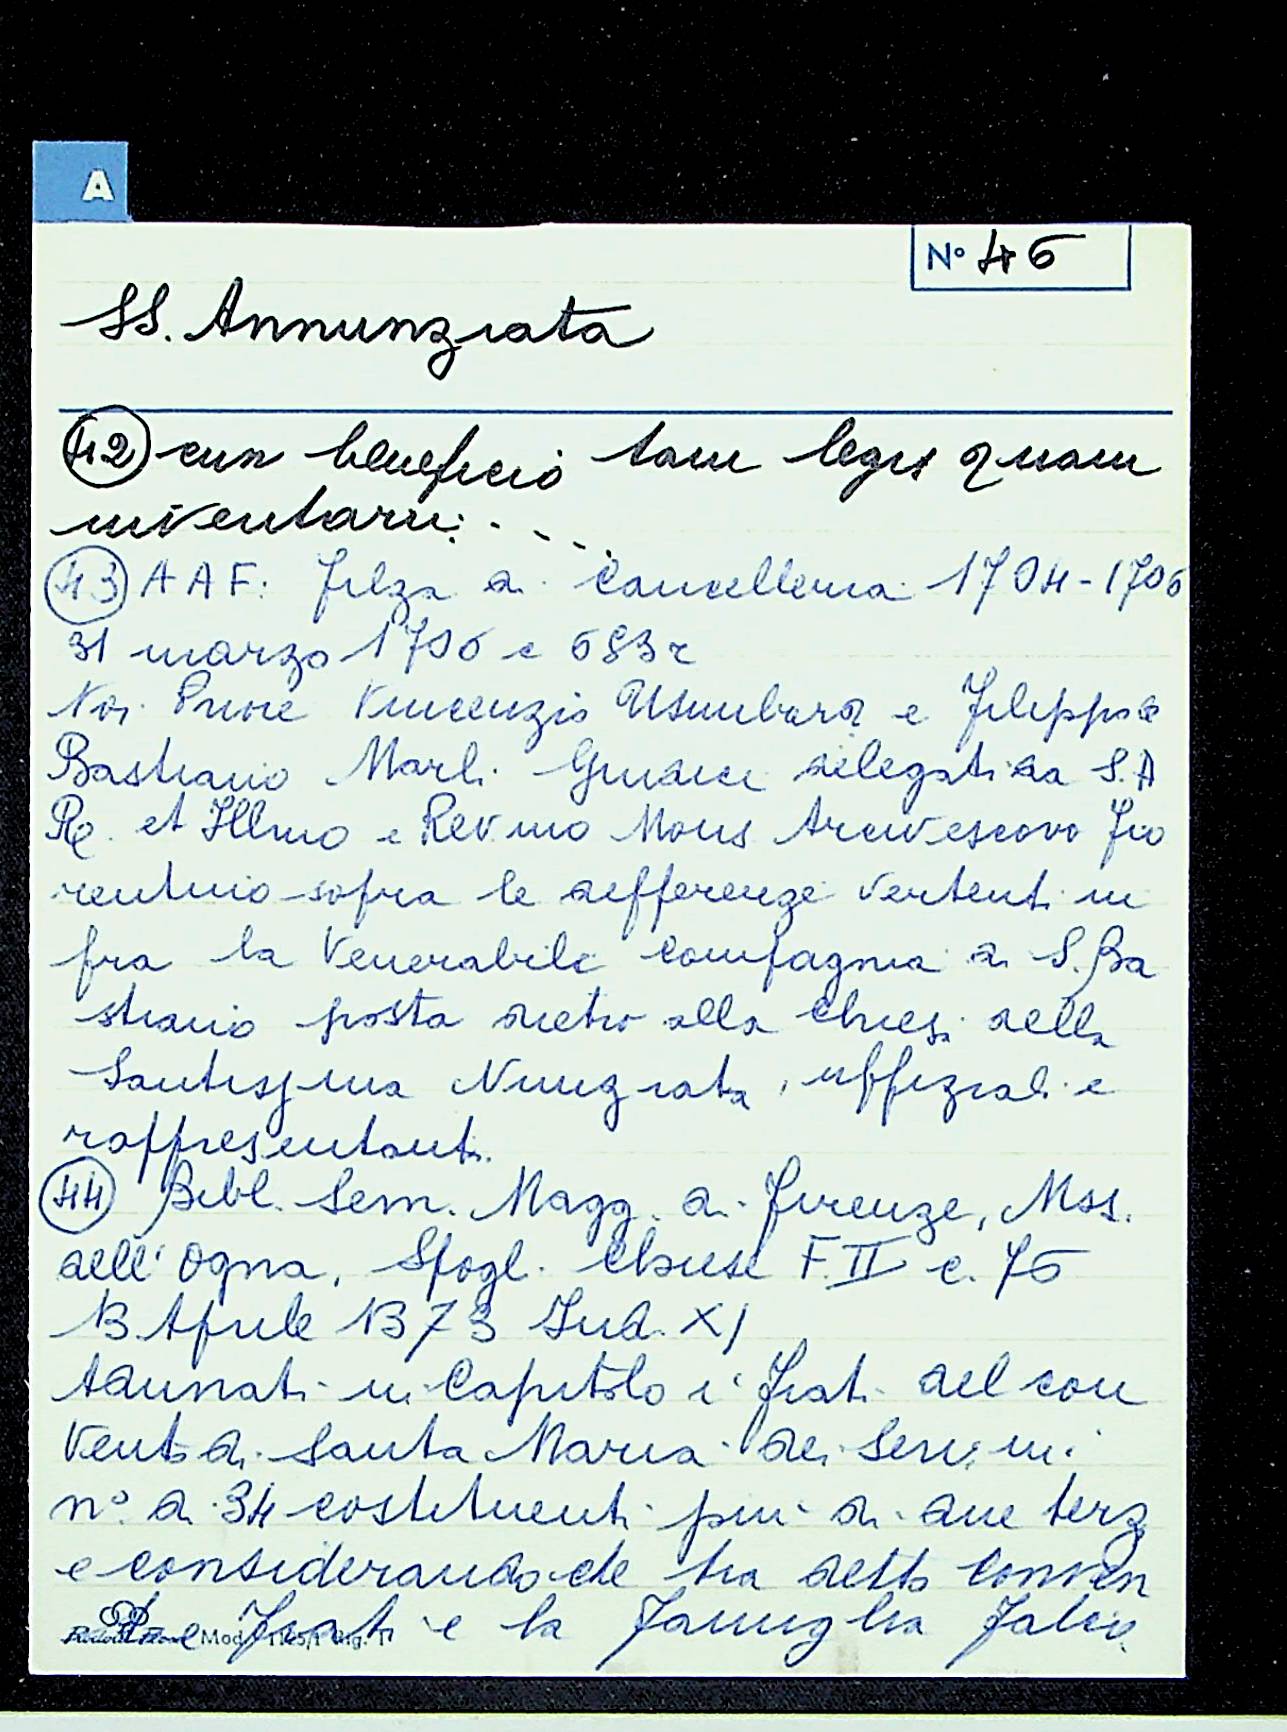 A
N° 46
SS. Annunziata
42 cum beneficio tam legis quam
inventarii: . . . .
43 AAF: filza di Cancelleria 1704-1706
31 marzo 1706 c 683r
Noi Priore Vincenzio Usimbardi e Filippo
Bastiano Marli Giudici delegati da S.A
R. et Illmo e Rev mo Mons Arcivescovo Fio
rentino sopra le differenze vertenti in
fra la Venerabile compagnia di S. Ba
stiano posta dietro alla Chiesa della
Santissima Nunziata, uffiziali e
rappresentanti.
44 Bibl. Sem. Magg. di Firenze, Mss.
dell'Ogna, Spogl. Chiese F. II c. 76
13 Aprile 1373 Ind. XI
Adunati in Capitolo i frati del con
vento di Santa Maria dei Servi in
n° di 34 costituenti più di due terzi
e considerando che tra detto conven
to e frati e la famiglia Falco
Mod.